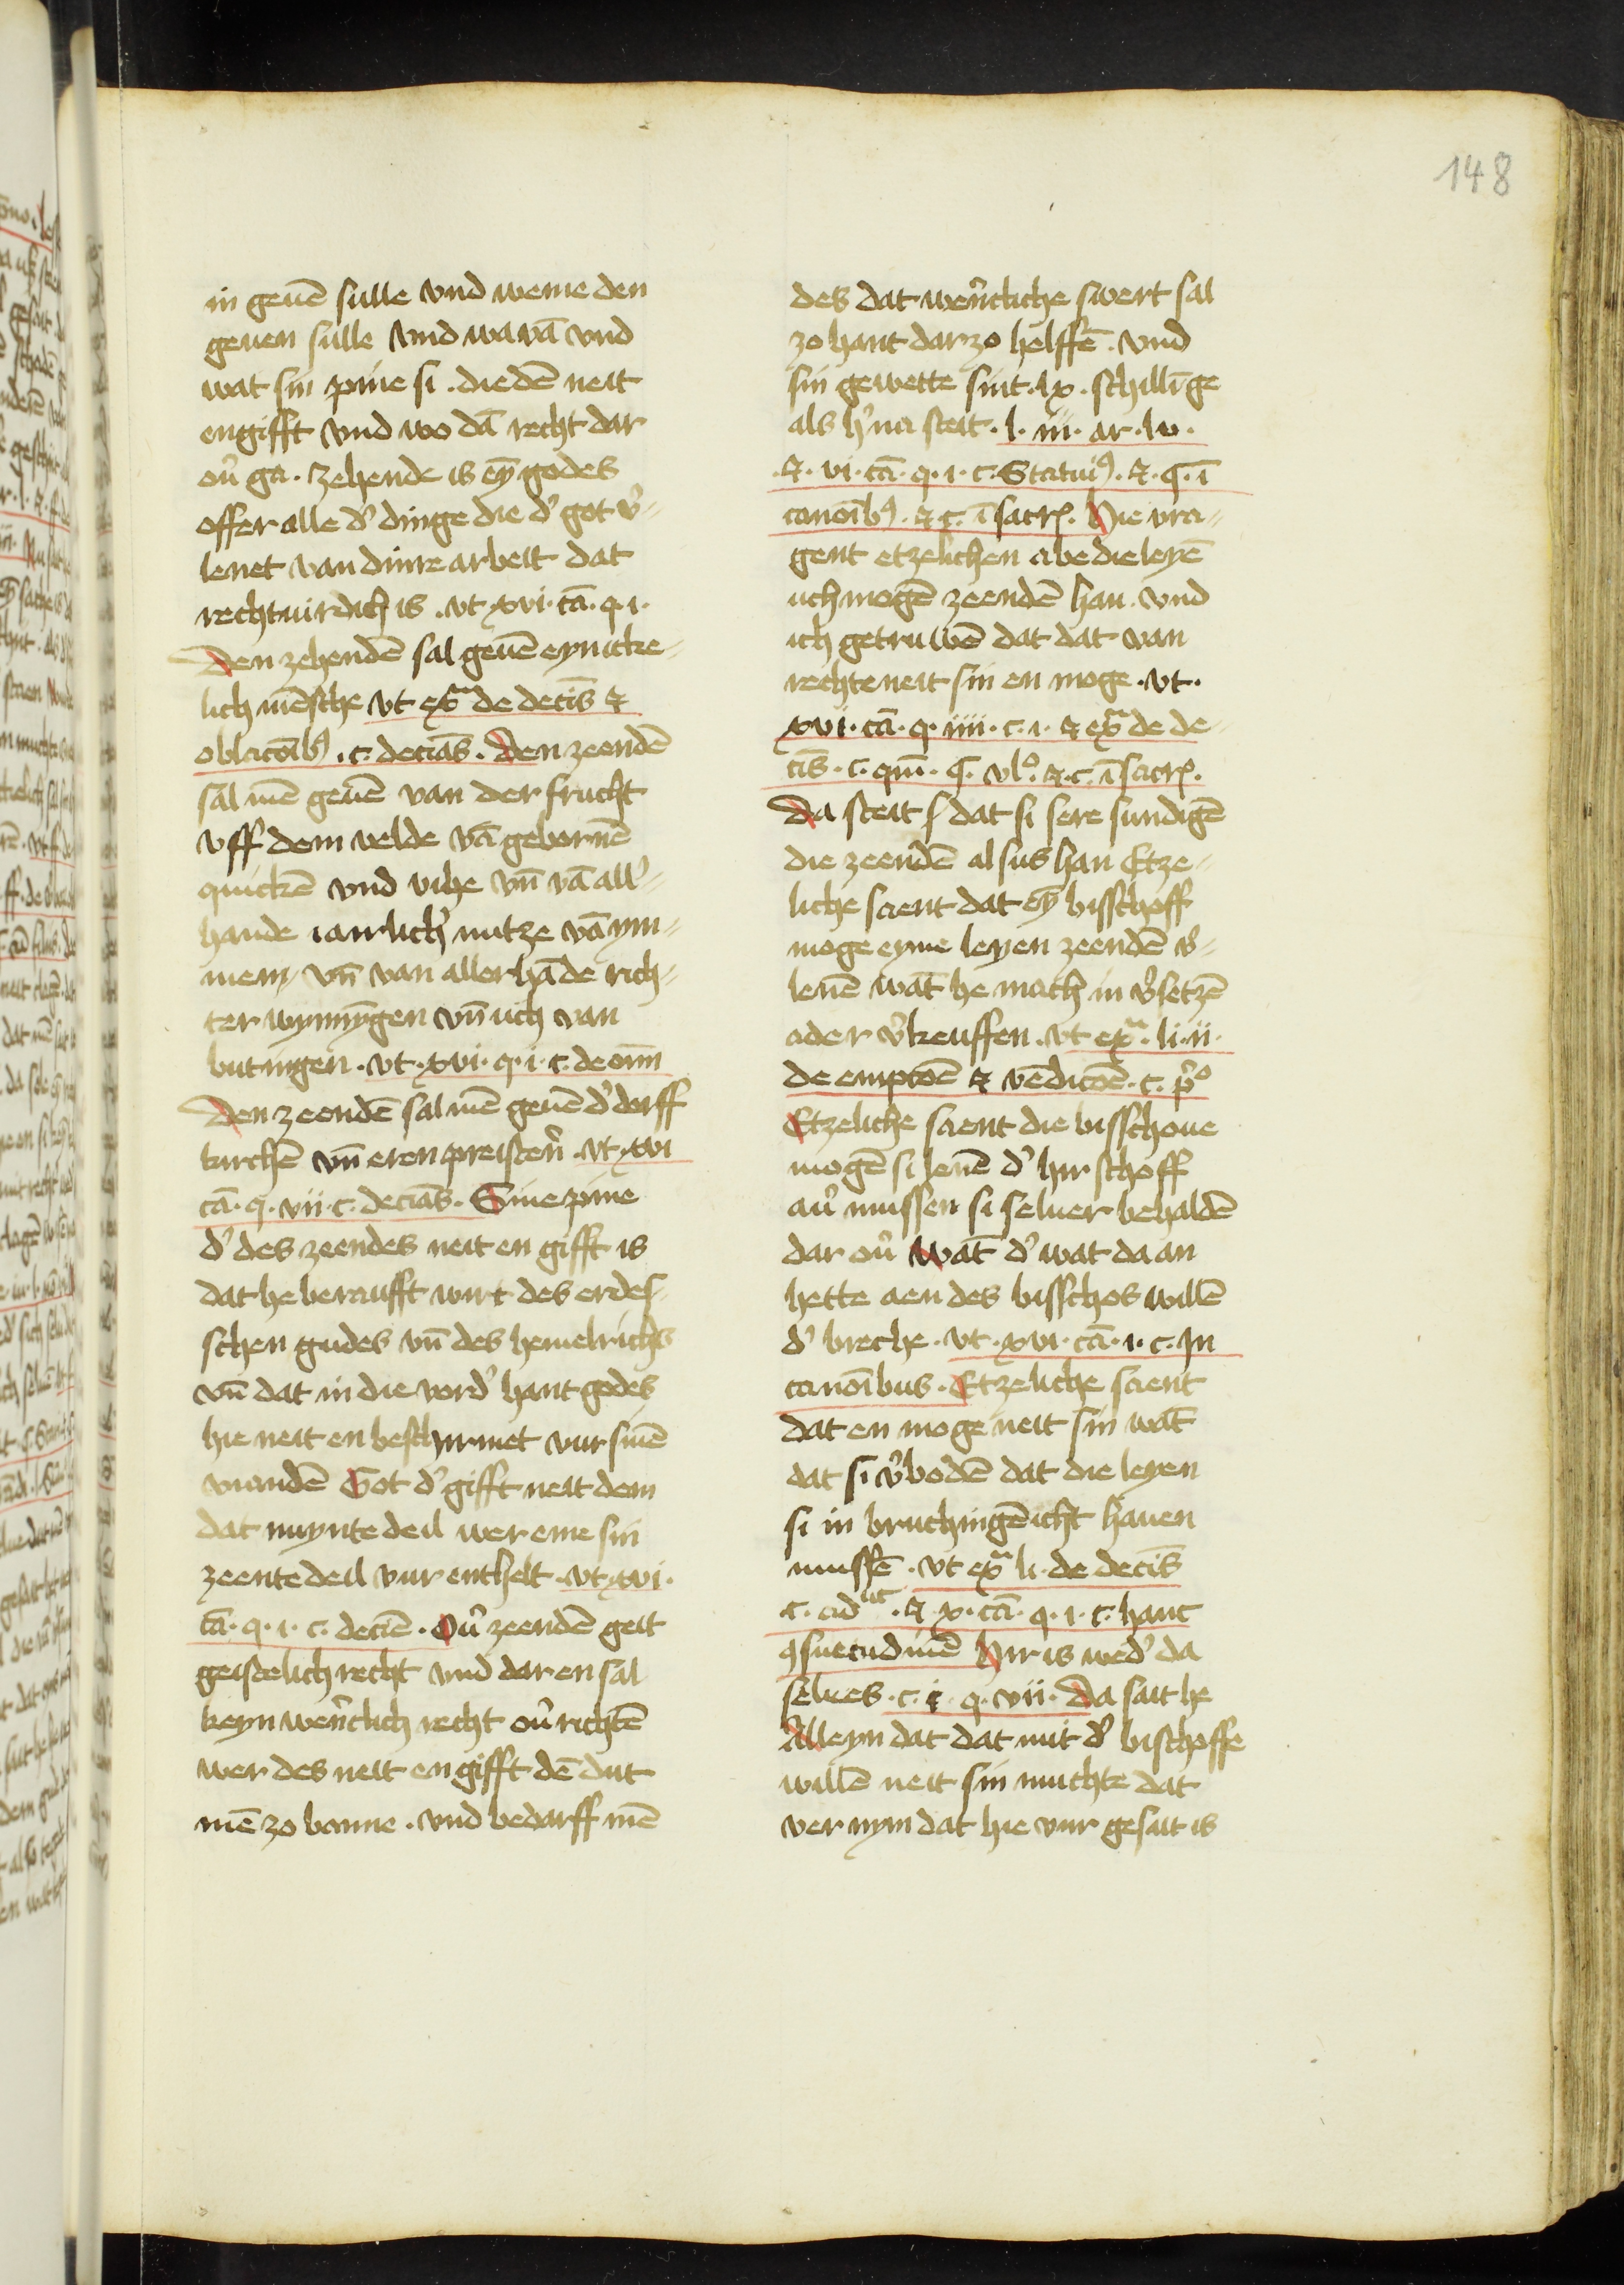 148
in geuē sulle vnd weme den
geuen sulle vnd wa vā vnd
wat sin pine si . die dē neit
engifft vnd wo dā recht dar
ou̓ ga . Zehende is ey̅ godes
offer alle d' dinge die d' got v'-
lenet van dinre arbeit dat
rechtuirdich is . vt xvi . cā . q . i .
Den zehendē sal geuē eynicke-
lich mēsche vt exa de decīs &
oblacoībꝰ . c . deciās . Den zeendē
sal mē geuē van der frucht
vff dem velde vā gebornē
quickē vnd vihe vn̄ vā all'-
hande iairlich' nutze vā ym-
mem vn̄ van allerhāde rich-
ter wynnȳgen vn̄ uch van
butingen . vt . xvi . q . i . c . de om̄
Den zeendē sal mē geuē d' dorff
kirchē vn̄ eren preistern̄ . vt . xvi
cā . q . vii . c . deciās . Sine pine
d' des zeendes neit en gifft is
dat he beraufft wirt des erdes-
schen gudes vn̄ des hemelrichs
vn̄ dat in die vord' hant godes
hie neit en beschirmet vur sinē
viandē Got d' gifft neit dem
dat nuynte deil wer eme sin
zeente deil vur enthelt . vt . xvi .
cā . q . i . c . deciē . Ou̓ zeendē geit
geistelich recht vnd dar en sal
keyn wern̄tlich recht ou̓ richtē
wer des neit en gifft dē dut
mē zo banne . vnd bedarff mē
des dat wern̄tliche swert sal
zo hant darzo helffē . vnd
sin gewette sint . lx . schillīge
als h'na steit . l . iii . ar . lv .
. & . vi . cā . q . i . c . Statuīꝰ . & . q . ī
canoībꝰ . & c . ī sacrꝭ . Hie vra-
gent etzelichen abe die leyē
uch mogē zeendē han . vnd
ich getruwē dat dat van
rechte neit sin en moge . vt .
xvi . cā . q . iiii . c . i . & exa de de-
cīs . c . qm̄ . q . vlo . & . c . ī sacrꝭ .
Da steit dat si sere sundigē
die zeendē alsus han Etze-
liche saent dat ey̅ bisschoff
moge eyme leyen zeendē v'-
lenē wāt he mach in v'setzē
ader v'keuffen . vt exa . li . ii .
de empcōē & vēdicōē . c . po
Etzeliche saent die bisschoue
mogē si lenē d' hirschoff
au̓ mussen si seluer behaldē
dar ou̓ wāt d' wat da an
hette aen des bisschos willē
d' breche . vt . xvi . cā . i . c . In
canoībus . Etzeliche saent
dat en moge neit sin wāt
dat si v'bodē dat die leyen
si in bruchingē icht hauen
mussē . vt exa li . de decīs
c . ad hec . & . x . cā . q . i . c . hanc
ꝯsuetudinē Hir is wed' da
selues . c . i . q . vii . Da sait he
Alleyn dat dat mit d' bischoffe
willē neit sin muchte dat
vernym dat hie vur gesait is